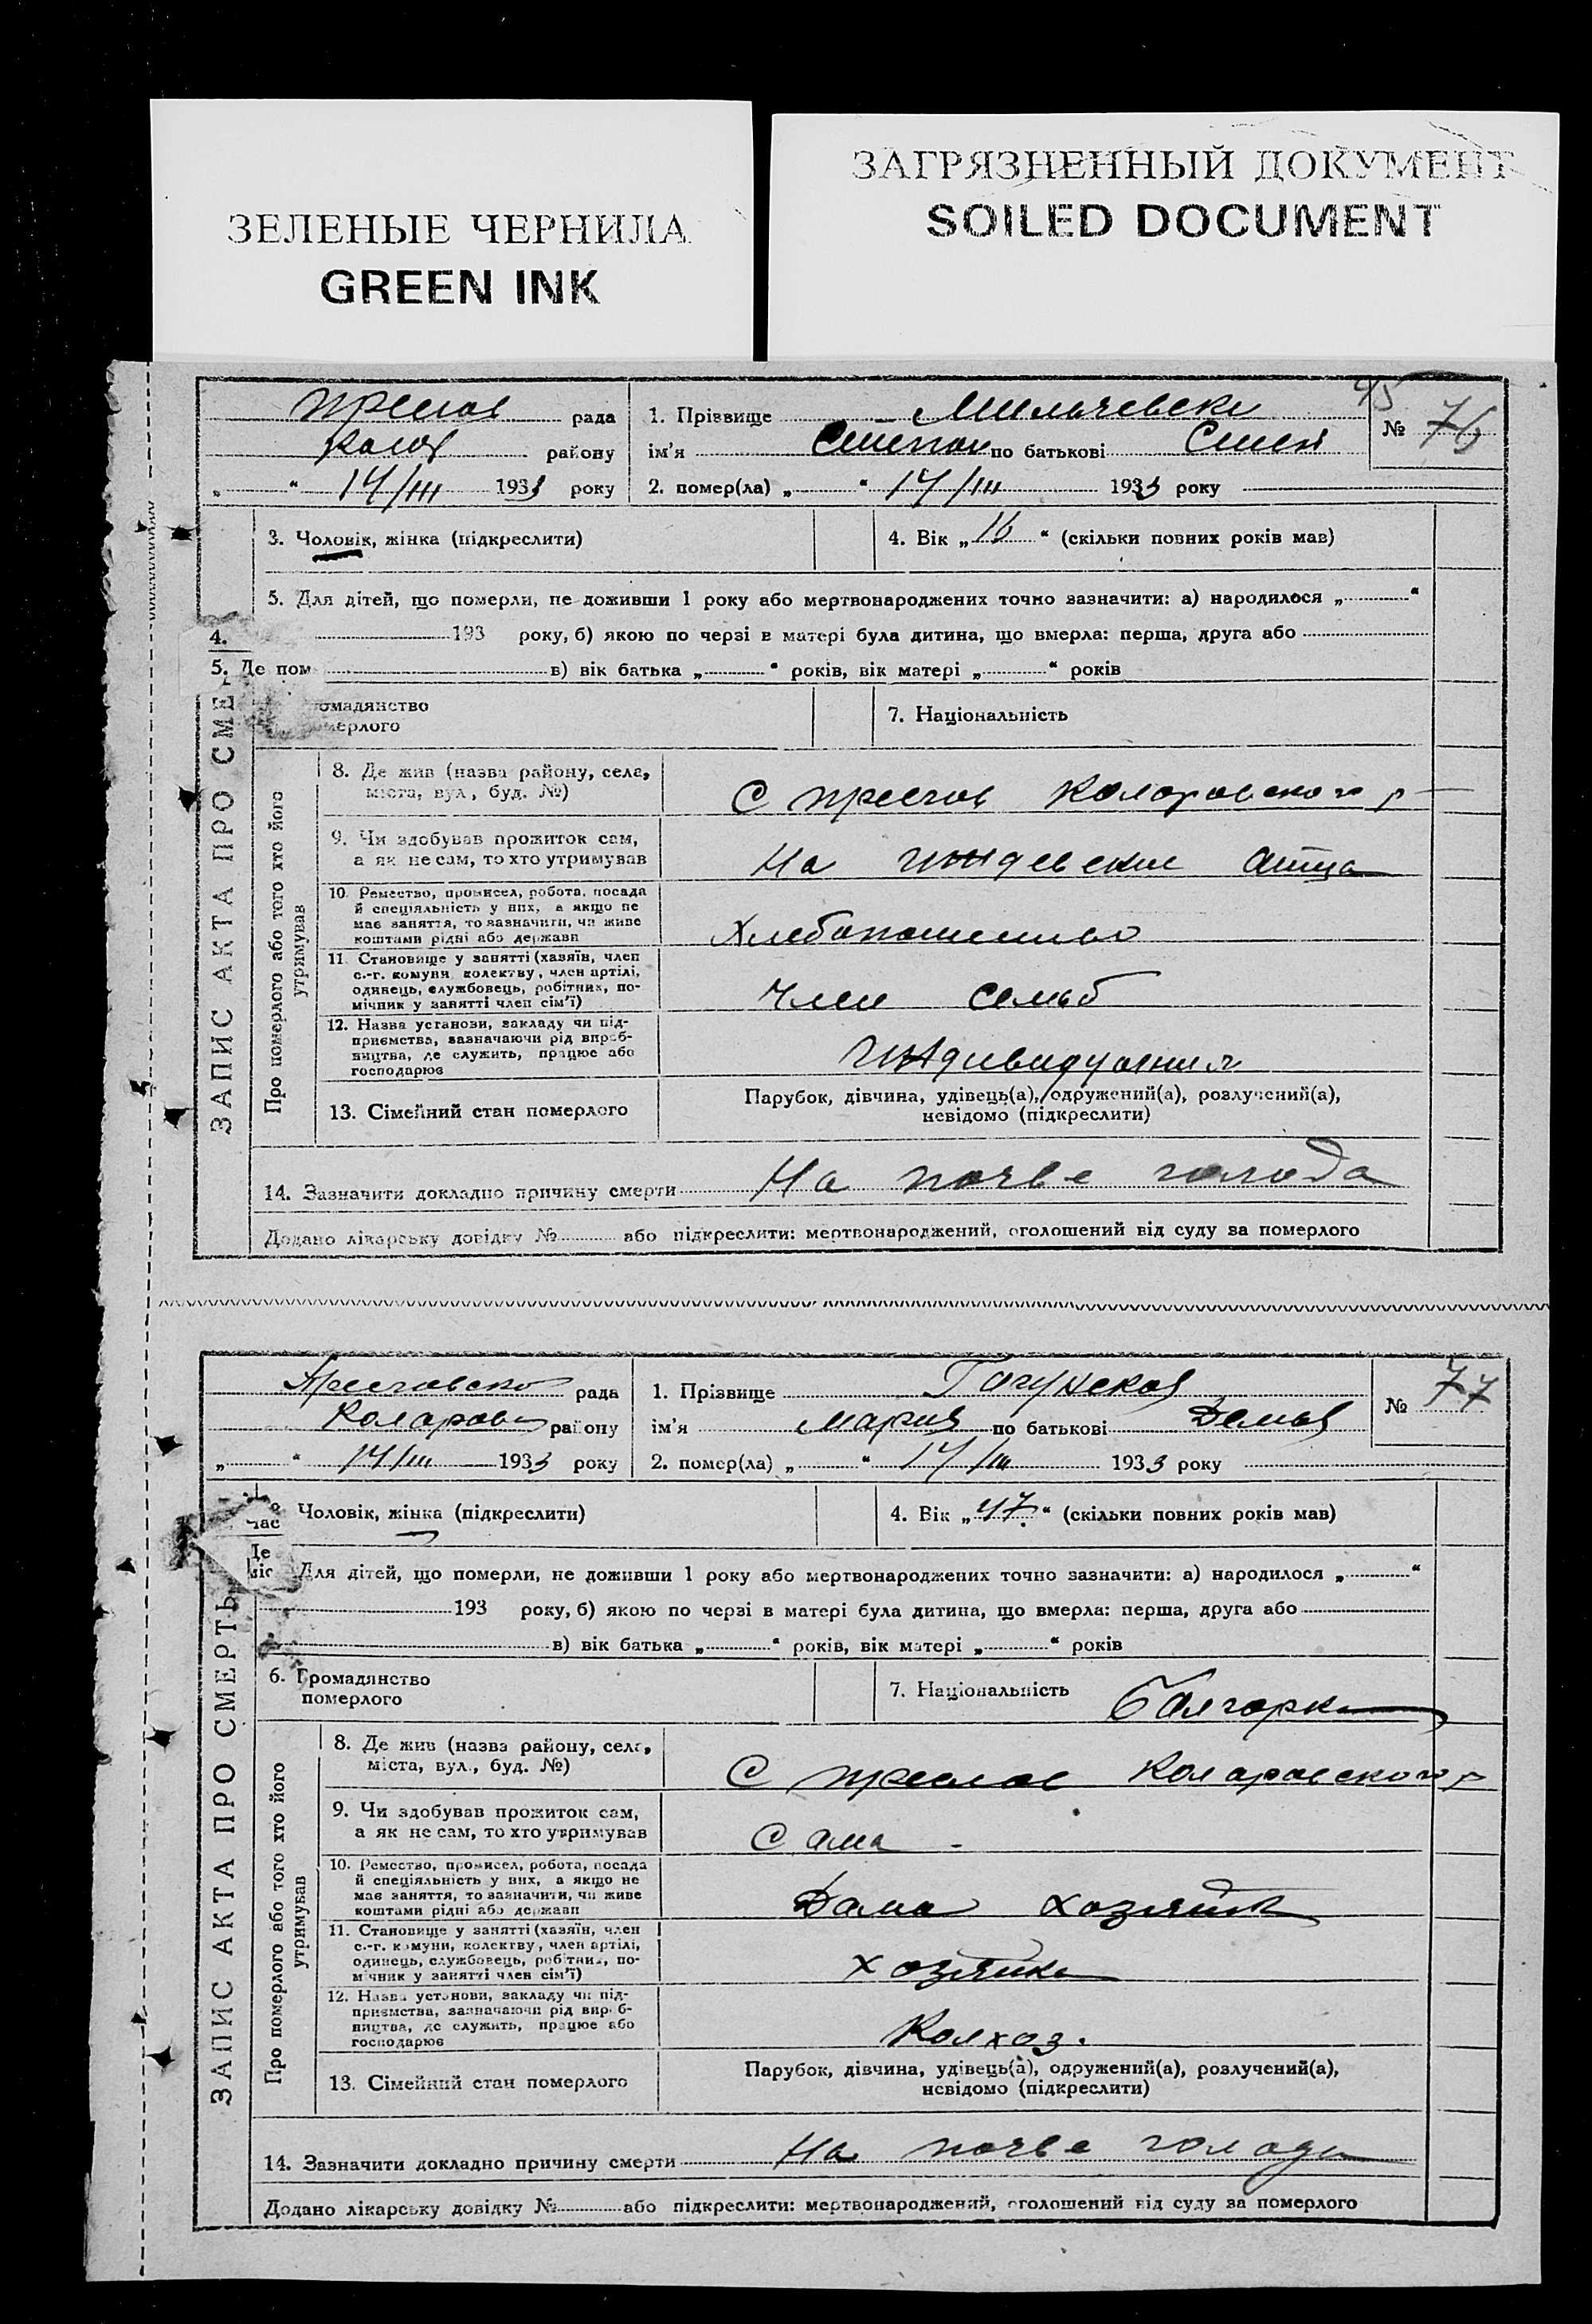 ЗЕЛЕНЫЕ ЧЕРНИЛА
GREEN INK
ЗАГРЯЗНЕННЫЙ ДОКУМЕНТ
SOILED DOCUMENT
рада
району
„ “ 14/III 1933 року
1. Прізвище Мильчевски
ім'я Степан по батькові Степ
2. помер(ла) „ “ 14/III 1933 року
№ 76
3. Чоловік, жінка (підкреслити)
4. Вік „16“ (скільки повних років мав)
5. Для дітей, що померли, не доживши 1 року або мертвонароджених точно зазначити: а) народилося „ “
4.
193 року, б) якою по черзі в матері була дитина, що вмерла: перша, друга або
5. Де пом
в) вік батька „ “ років, вік матері „ “ років
омадянство
мерлого
7. Національність
ЗАПИС АКТА ПРО СМЕ
Про померлого або того хто його
утримував
8. Де жив (назва району, села,
міста, вул., буд. №)
С Преслав Коларовского р
9. Чи здобував прожиток сам,
а як не сам, то хто утримував
На отца
10. Ремество, промисел, робота, посада
й спеціяльність у них, а якщо не
має заняття, то зазначити, чи живе
коштами рідні або держави
Хлебопашество
11. Становище у занятті (хазяїн, член
с.-г. комуни, колективу, член артілі,
одинець, службовець, робітник, по-
мічник у занятті член сім'ї)
Член семьи
12. Назва установи, закладу чи під-
приємства, зазначаючи рід вироб-
ництва, де служить, працює або
господарює
13. Сімейний стан померлого
Парубок, дівчина, удівець(а), одружений(а), розлучений(а),
невідомо (підкреслити)
14. Зазначити докладно причину смерти На почве голода
Додано лікарську довідку № або підкреслити: мертвонароджений, оголошений від суду за померлого
Преславско рада
Коларовс району
„ “ 14/III 1933 року
1. Прізвище
ім'я Мария по батькові Демья
2. помер(ла) „ “ 14/III 1933 року
№ 77
Чоловік, жінка (підкреслити)
час
4. Вік „47“ (скільки повних років мав)
Де
Для дітей, що померли, не доживши 1 року або мертвонароджених точно зазначити: а) народилося „ “
193 року, б) якою по черзі в матері була дитина, що вмерла: перша, друга або
в) вік батька „ “ років, вік матері „ “ років
6. Громадянство
померлого
7. Національність Болгарка
ЗАПИС АКТА ПРО СМЕРТЬ
Про померлого або того хто його
утримував
8. Де жив (назва району, села,
міста, вул., буд. №)
С Преслав Коларовского р
9. Чи здобував прожиток сам,
а як не сам, то хто утримував
Сама
10. Ремество, промисел, робота, посада
й спеціяльність у них, а якщо не
має заняття, то зазначити, чи живе
коштами рідні або держави
Дома хозяйка
11. Становище у занятті (хазяїн, член
с.-г. комуни, колективу, член артілі,
одинець, службовець, робітник, по-
мічник у занятті член сім'ї)
хозяйка
12. Назва установи, закладу чи під-
приємства, зазначаючи рід вироб-
ництва, де служить, працює або
господарює
Колхоз.
13. Сімейний стан померлого
Парубок, дівчина, удівець(а), одружений(а), розлучений(а),
невідомо (підкреслити)
14. Зазначити докладно причину смерти На почве голода
Додано лікарську довідку № або підкреслити: мертвонароджений, оголошений від суду за померлого